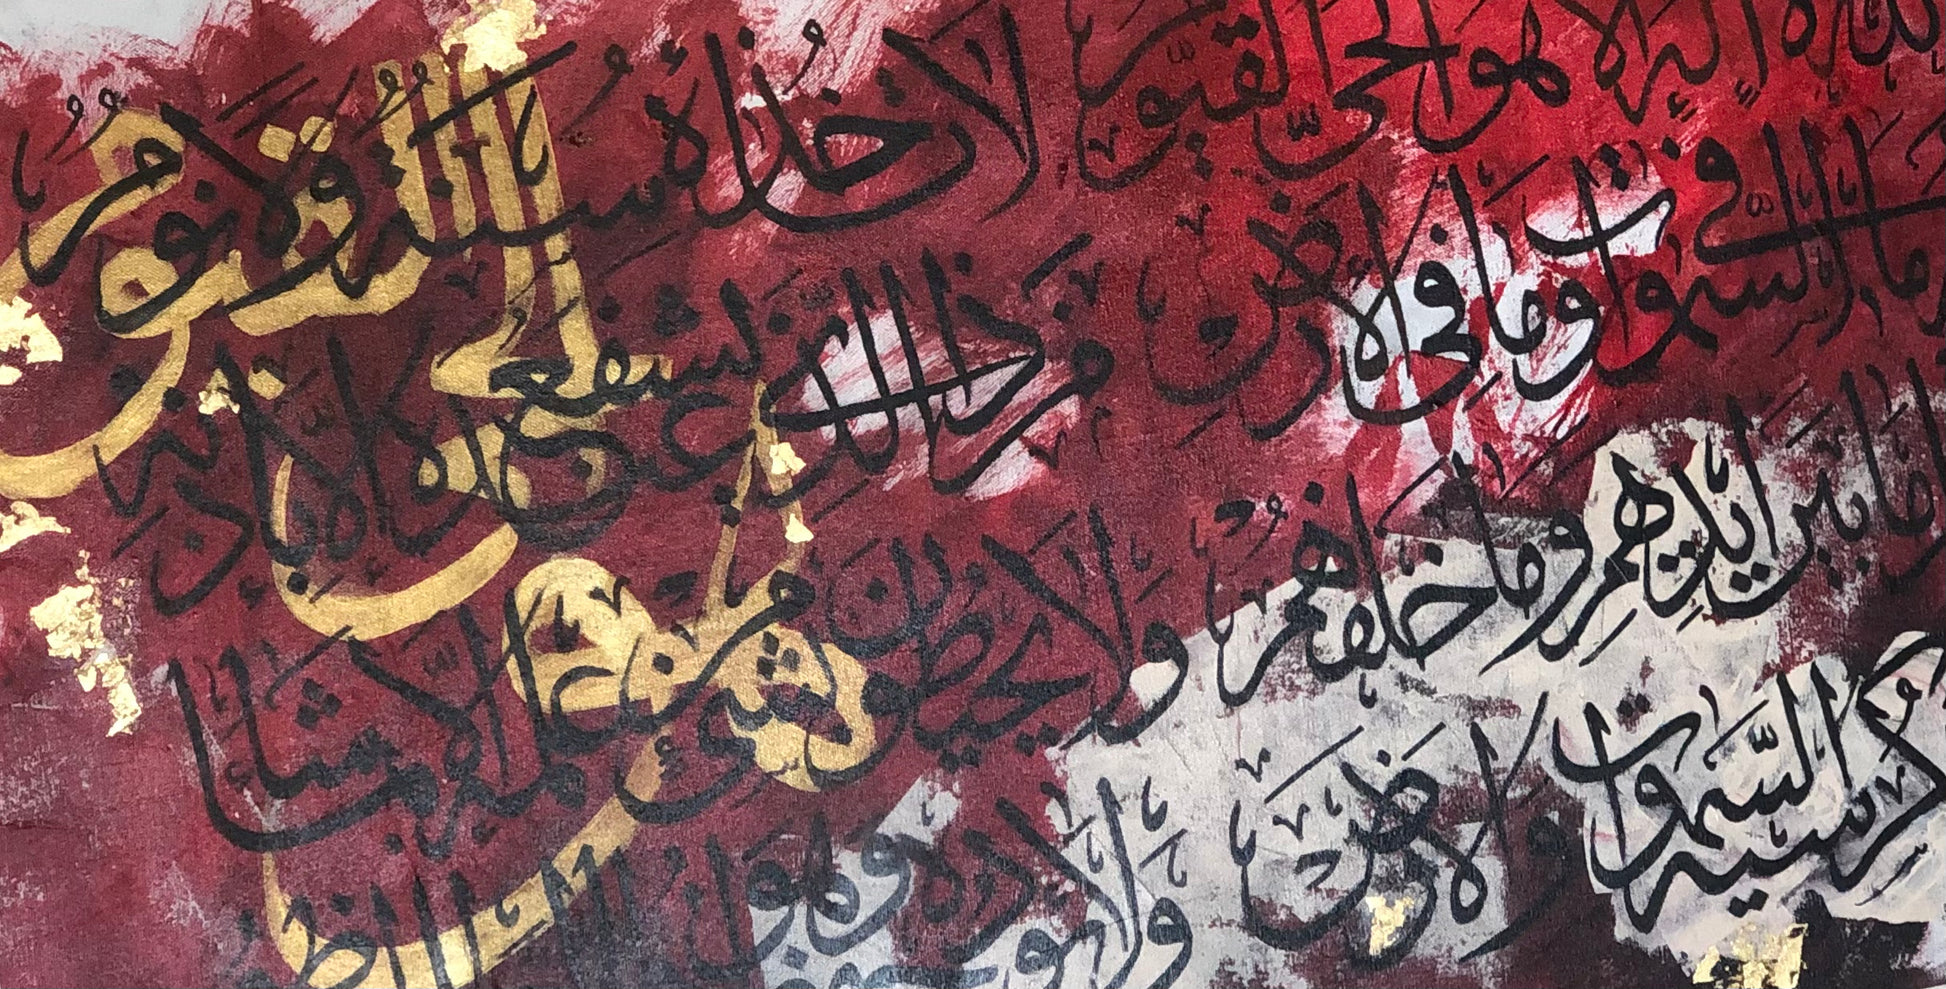 لا إله إلا هو الحي القيوم لا تأخذه سنة ولا نوم
ما في السموت وما في الأرض من ذا الذي يشفع عنده إلا بإذنه
ما بين أيديهم وما خلفهم ولا يحيطون بشيء من علمه إلا بما شاء
كرسيه السموت والأرض ولا يؤده وهو
القيوم